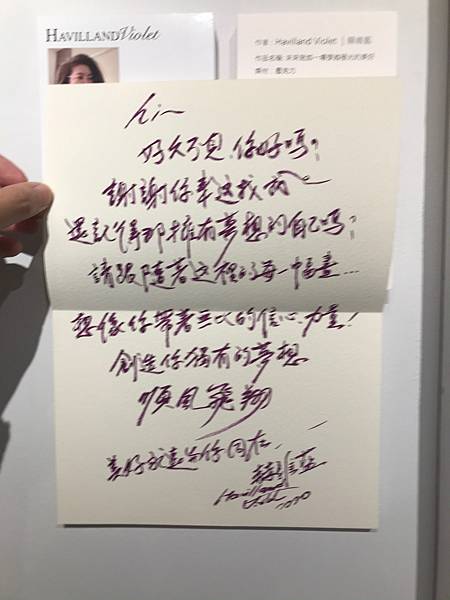 HAVILLAND Violet
作者：Havilland Violet
hi~
好久不見.你好嗎?
謝謝你來這找我~
還記得那擁有夢想的自己嗎?
請跟隨著這裡的每一幅畫...
想像你帶著無比的信心.力量!
創造你獨有的夢想
順風飛翔
美好永遠與你同在.
Havilland
Violet